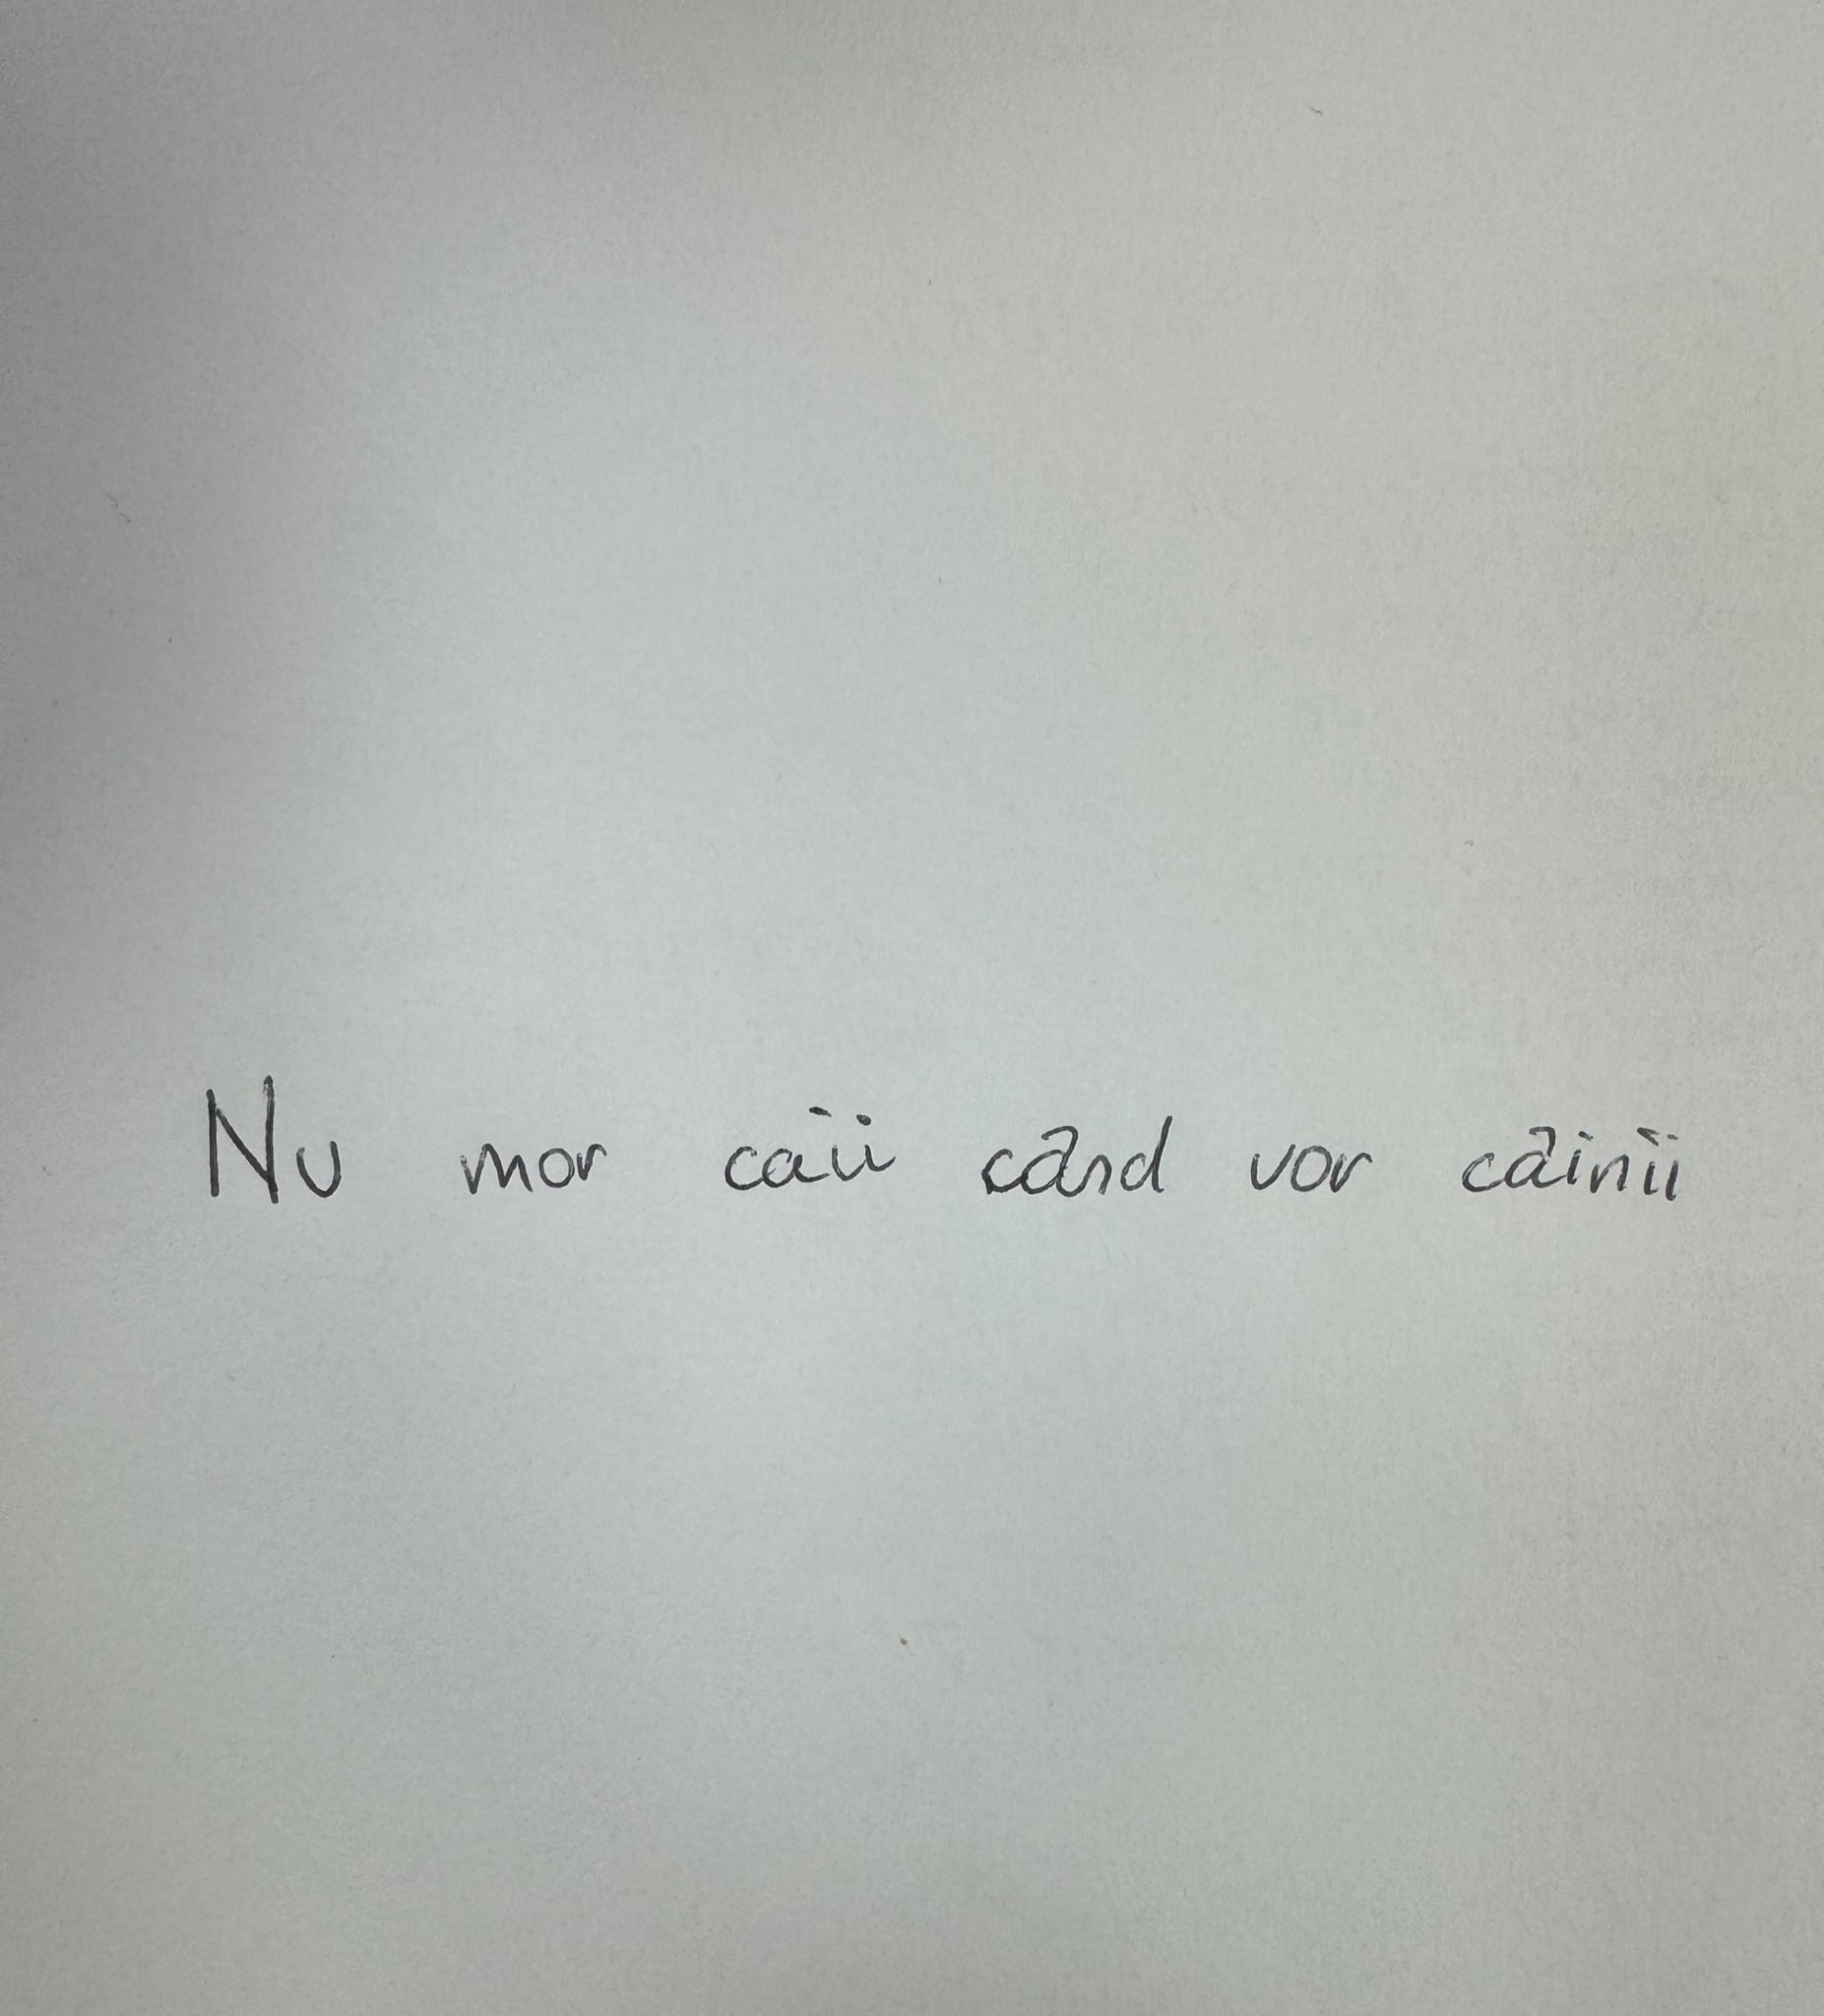 Nu mor caii când vor câinii